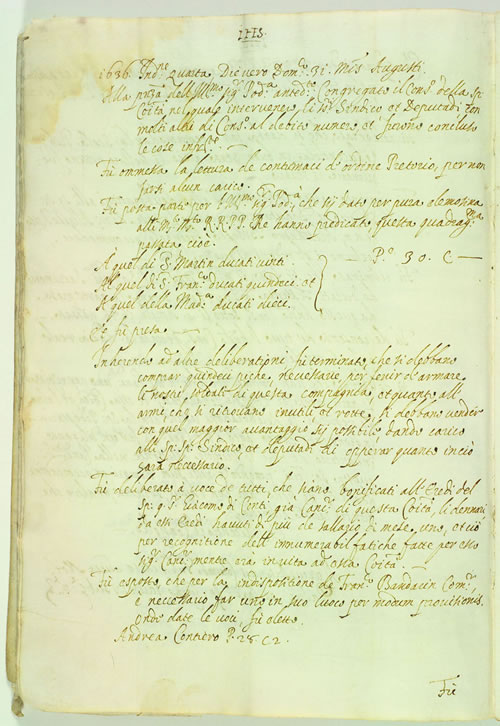 1636. Ind.ne quarta Die vero Dom.co 31. Mēs Augusti
Alla prza dell' Ill.mo sig.r Pod.a anted.to Congregato il Cons.o della Sp.
Coīta nel quale intervenero li Sindico et Deputadi con
molti altri di Cons.o al debito numero, et furono concluso
le cose infr.te
Fù ommessa la lettura de contumaci d'ordine Pretorio, per non
farsi alcun carico.
Fù posta parte per l'Ill.mo sig.r Pod.a che sij dato per pura elemosina
alli R.R.P.P. che hanno predicato questa quadrag.ma
passata cioè.
A quel di S. Martin ducati vinti P.e 30. C —
A quel di S. Fran.co ducati quindeci. et
A quel della Mad.a ducati dieci.
Et fù presa
Inherendo ad altre deliberationi fù terminato, che si debbano
comprar quindeci piche, necessarie per servir et armare
li nostri soldati di questa compagnia, et quanto all'
armi, che si ritrovano inutili et rotte, si debbano vender
con quel maggior avantaggio sij possibile dando carico
alli Sp. Sp. Sindico, et deputadi di opperar quanto in ciò
sarà necessario.
Fù deliberato à voce de tutti, che siano bonificati all' Eredi del
Sp. q. Giacomo di Corti, già Canc.r di questa Coīta, li dennari
da essi Eredi havuti di più che sallagio di mese uno, et ciò
per recognitione dell' innumerabil fatiche fatte per esso
sig.r Canc.r mentre era in vita ad essa Coīta.
Fù esposto, che per la indispositione de Fran.co Bandacin Com.r
è necessario far uno in suo luoco per modum provisionis
onde date le voci, fù eletto.
Andrea Contiero P. 28. C 2.
Fù